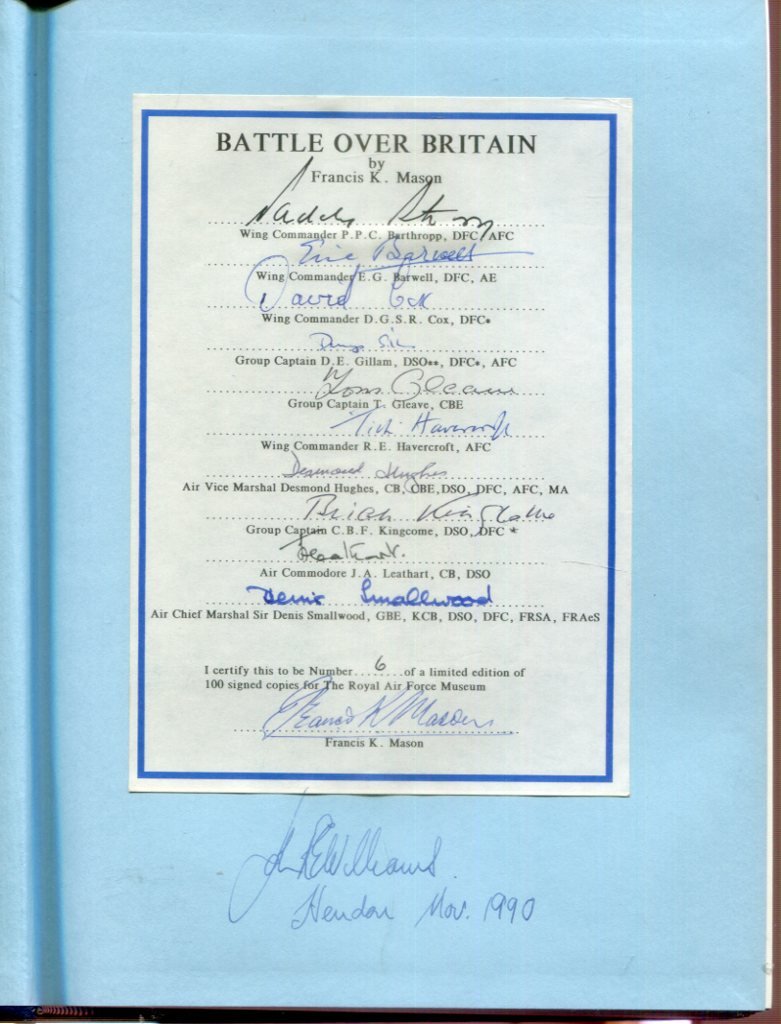 BATTLE OVER BRITAIN
by
Francis K. Mason
Paddy
Wing Commander P.P.C. Barthropp, DFC, AFC
Eric Barwell
Wing Commander E.G. Barwell, DFC, AE
David Cox
Wing Commander D.G.S.R. Cox, DFC*
Group Captain D.E. Gillam, DSO**, DFC*, AFC
Tom Gleave
Group Captain T. Gleave, CBE
Tich Havercroft
Wing Commander R.E. Havercroft, AFC
Desmond Hughes
Air Vice Marshal Desmond Hughes, CB, CBE, DSO, DFC, AFC, MA
Brian Kingcome
Group Captain C.B.F. Kingcome, DSO, DFC *
Air Commodore J.A. Leathart, CB, DSO
Denis Smallwood
Air Chief Marshal Sir Denis Smallwood, GBE, KCB, DSO, DFC, FRSA, FRAeS
I certify this to be Number....6....of a limited edition of
100 signed copies for The Royal Air Force Museum
Francis K Mason
Francis K. Mason
Williams
Hendon Nov. 1990